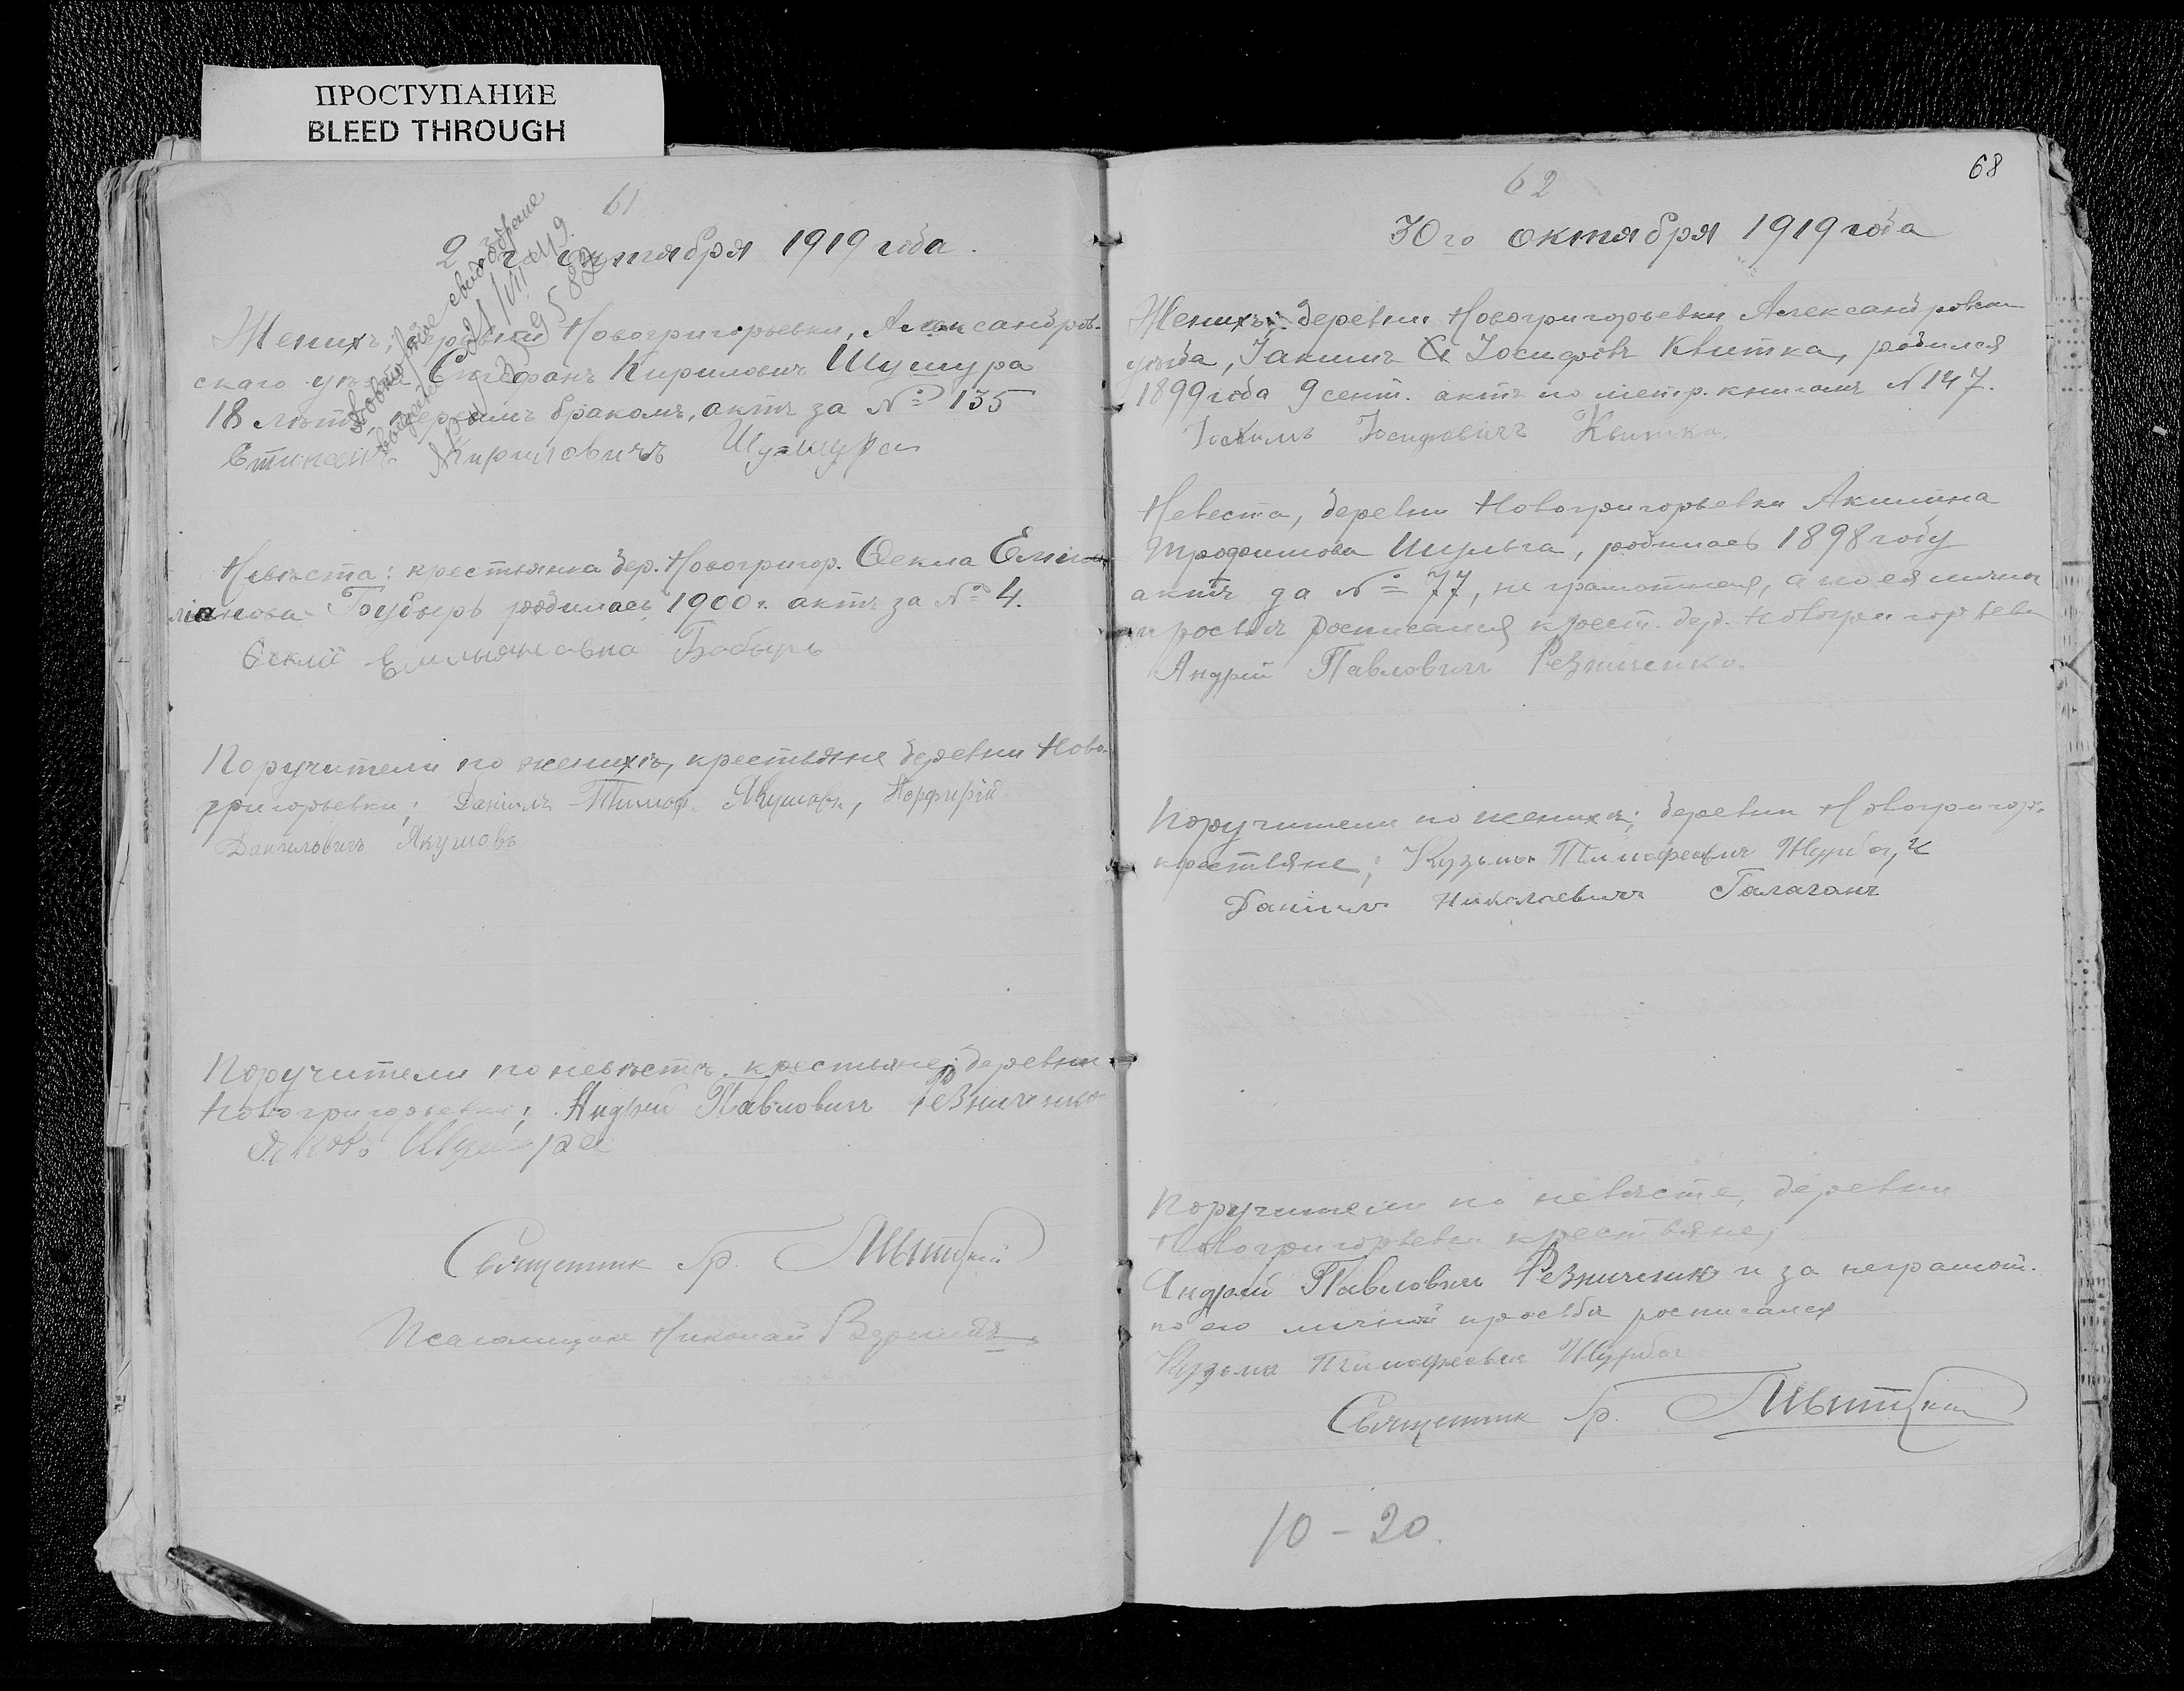 ПРОСТУПАНИЕ
BLEED THROUGH
61
октября 1919 года.
Женихъ; деревни Новогригорьевки, Александров-
скаго Стефанъ Кириловичъ Шушура
18 лѣтъ, первымъ бракомъ, актъ за № 135
Кириловичъ Шушура
Невѣста: крестьянка дер. Новогригор. Ѳекла Емил
ліанова родилась 1900 г. актъ за № 4.
Емильяновна Бобырь
Поручители по женихѣ, крестьяне деревни Ново-
григорьевки; Данiилъ Тимоф. Якушовъ, Порфирій
Даниловичъ Якушовъ
Поручители по невѣстѣ крестьяне деревни
Новогригорьевки; Андрей Павловичъ Резниченко
Яковъ Шушура
Священник Гр.
Николай
68
62
30го октября 1919 года
Женихъ; деревни Новогригорьевки Александровск
уѣзда, Іакимъ Іосифовъ Квитка, родился
1899 года 9 сент. актъ по метр. книгамъ N 147.
Іосифовичъ Квитка.
Невеста, деревни Новогригорьевки Акилина
Трофимова Шульга, родилась 1898 году
актъ за № 77, не грамотная, а по ея личн
просьбѣ росписался крест. дер. Новогригорьевк
Андрей Павловичъ Резниченко.
Поручители по женихѣ; деревни Новогригор.
крестьяне; Кузьма Тимофеевич Журба, и
Даніилъ Николаевичъ Галаганъ
Поручители по невѣсте, деревни
Новогригорьевки крестьяне;
Андрей Павловичъ Резниченко и за неграмот.
по его личной просьбѣ росписался
Кузьма Тимофеевич Журба
Священник Гр.
10 - 20.